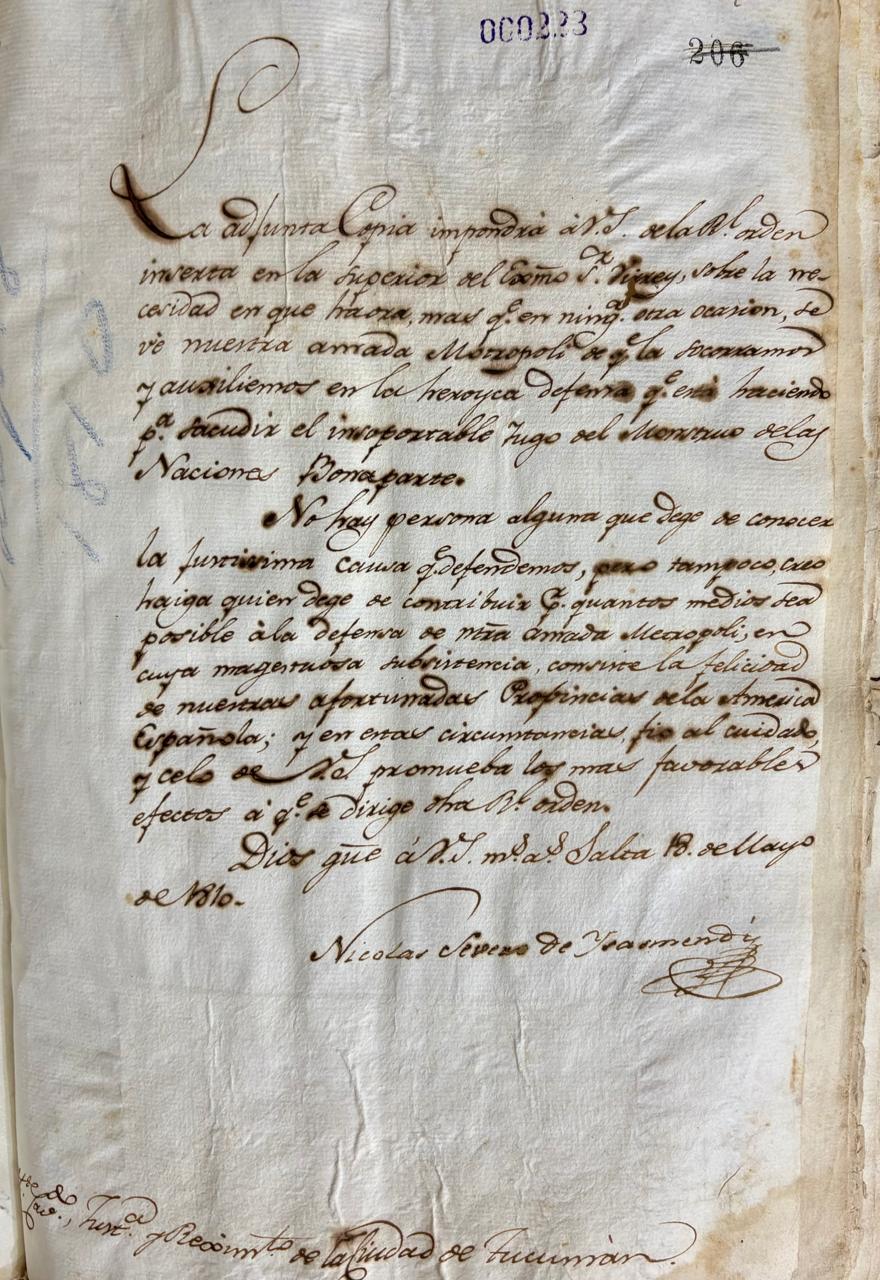 000233
206
La adjunta Copia impondrà à V.S. de la Rl. orden
inserta en la superior del Exmo Sr. Virrey, sobre la ne-
cesidad en que haora, mas qe. en ningª. otra ocasion, se
vè nuestra amada Metropoli de qe la socorramos
y auxiliemos en la heroyca defensa qe. està haciendo
pª. sacudir el insoportable Yugo del Monstruo de las
Naciones Bonaparte.
No hay persona alguna que dege de conocer
la justissima causa qe. defendemos, pero tampoco, creo
haiga quien dege de contribuir pr. quantos medios sea
posible à la defensa de ntra amada Metropoli, en
cuya magestuosa subsistencia, consiste la felicidad
de nuestras afortunadas Provincias de la America
Española; y en estas circunstancias, fio al cuidado,
y celo de V.S. promueba los mas favorables
efectos à qe. se dirige dha Rl. orden.
Dios gue à V.S. ms. as. Salta 18. de Mayo
de 1810.
Nicolas Severo de Ysasmendi
Justª. y Reximto. de la Ciudad de Tucumàn.